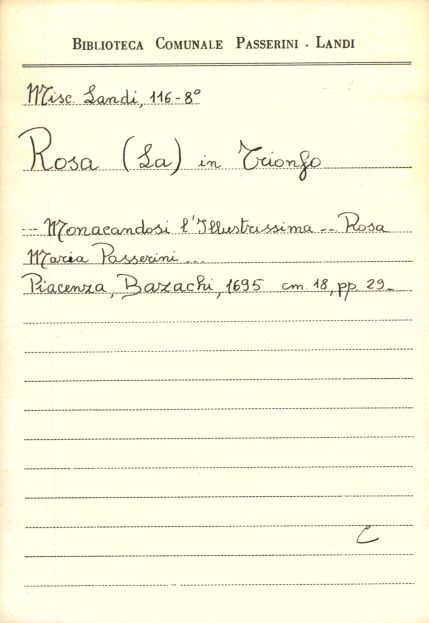 BIBLIOTECA COMUNALE PASSERINI - LANDI
Misc. Landi, 116-8°
Rosa (La) in Trionfo
--- Monacandosi l'Illustrissima --- Rosa
Maria Passerini ---
Piacenza, Bazachi, 1695 cm. 18, pp. 29.
C